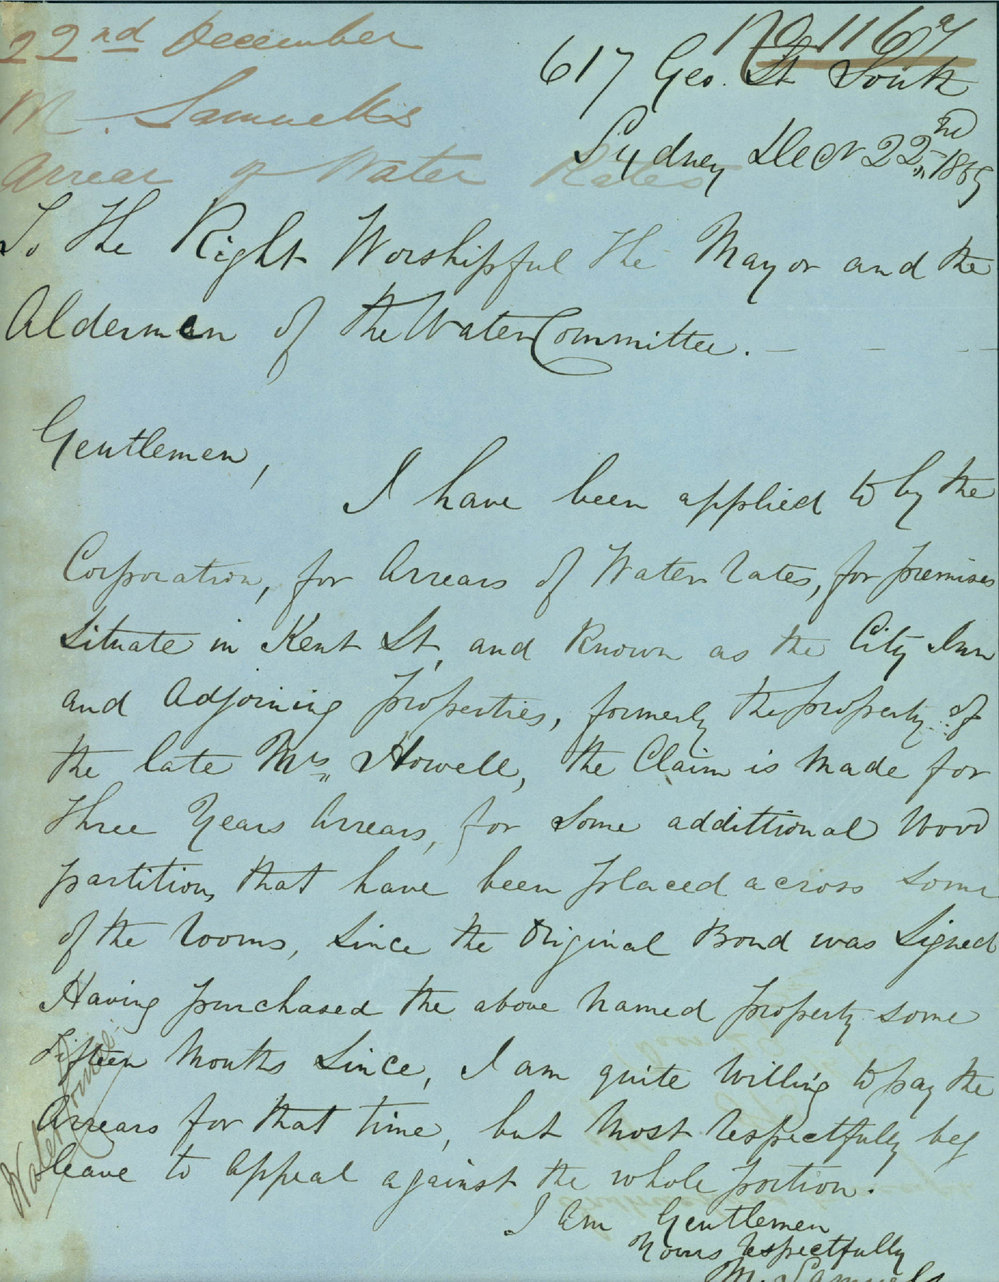 22nd December
M. Samuells
Arrear of Water Rates
1167
617 Geo. St South
Sydney Decr 22nd 1869
To The Right Worshipful The Mayor and the
Aldermen of the Water Committee.
Gentlemen,
I have been applied to by the
Corporation, for Arrears of Water rates, for premises
Situate in Kent St, and Known as the City Inn
and Adjoining properties, formerly the property of
the late Mrs Howell, the Claim is made for
three Years Arrears, for some addittional Wood
partitions that have been placed across some
of the rooms, since the Original Bond was Signed
Having purchased the above named property some
fifteen Months Since, I am quite Willing to pay the
Arrears for that time, but Most respectfully beg
leave to Appeal against the whole portion.
I am Gentlemen
Yours respectfully
M. Samuells
Water Comee